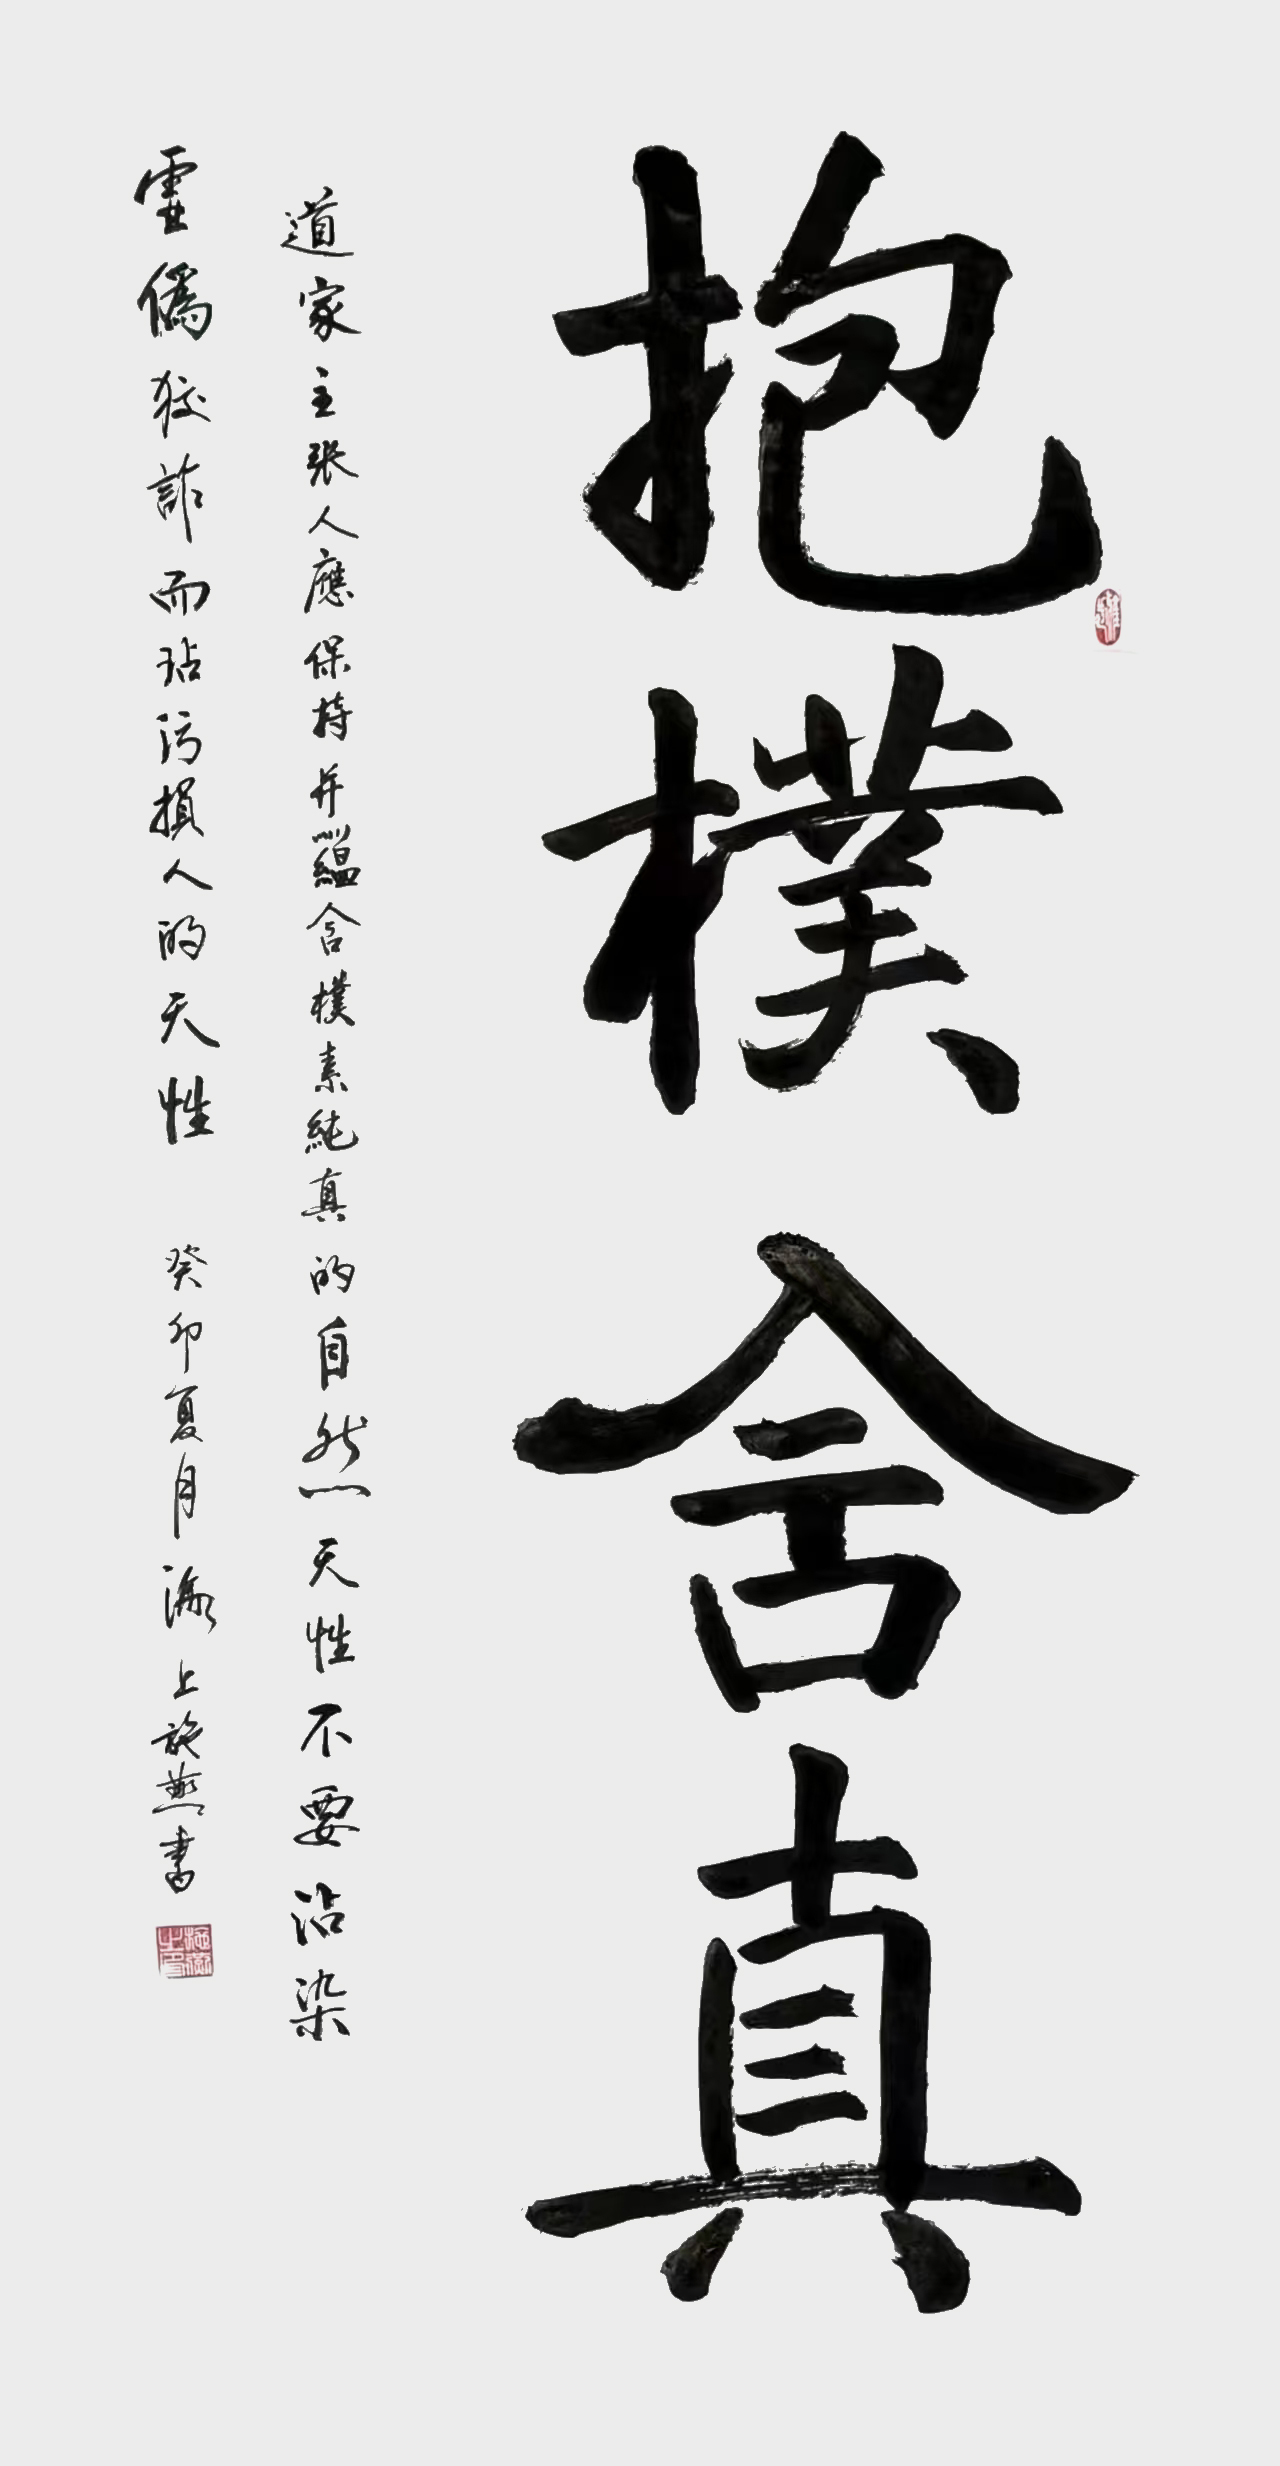 抱樸含真
道家主張人應保持并蘊含樸素純真的自然天性不要沾染
虛僞狡詐而玷污損人的天性 癸卯夏月 上施燕書